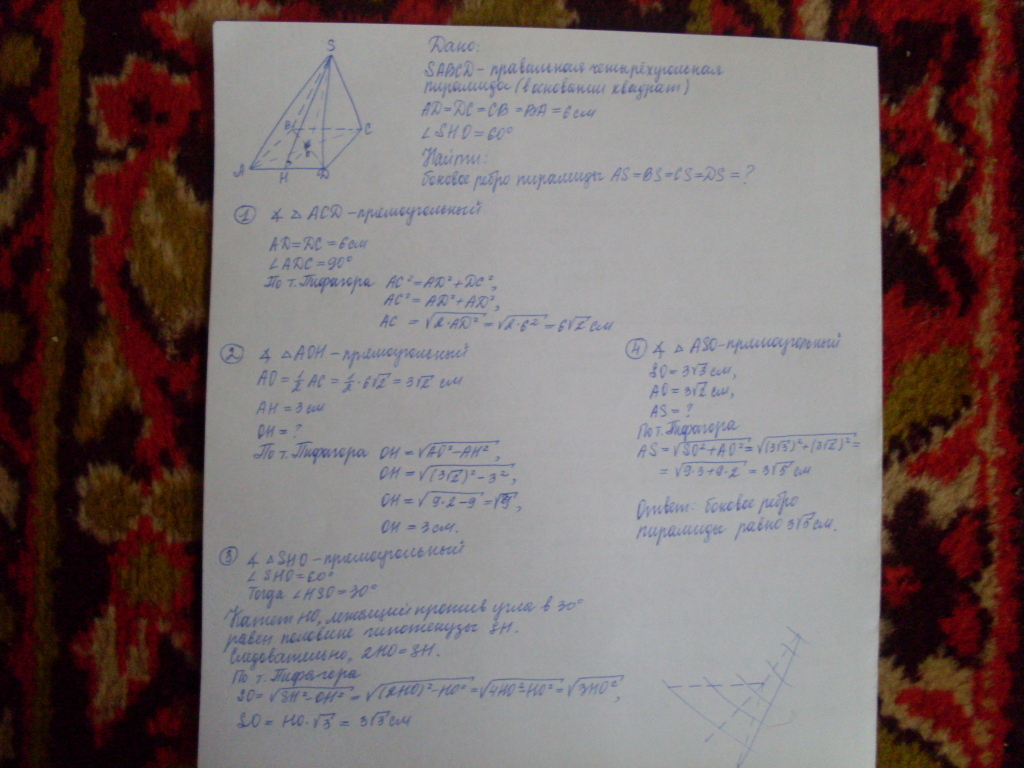 S
B
C
A
H
D
Дано:
SABCD - правильная четырёхугольная
пирамида (в основании квадрат)
AD = DC = CB = BA = 6 см
∠SHO = 60°
Найти:
боковое ребро пирамиды AS = BS = CS = DS = ?
① ∡ △ ACD - прямоугольный
AD = DC = 6 см
∠ADC = 90°
По т. Пифагора AC² = AD² + DC²,
AC² = AD² + AD²,
AC = √(2·AD²) = √(2·6²) = 6√2 см
② ∡ △AOH - прямоугольный
AO = 1/2 AC = 1/2 · 6√2 = 3√2 см
AH = 3 см
OH = ?
По т. Пифагора OH = √(AO² - AH²),
OH = √((3√2)² - 3²),
OH = √(9·2 - 9) = √9,
OH = 3 см.
③ ∡ △SHO - прямоугольный
∠SHO = 60°
Тогда ∠HSO = 30°
Катет HO, лежащий против угла в 30°
равен половине гипотенузы SH.
Следовательно, 2HO = SH.
По т. Пифагора
SO = √(SH² - OH²) = √((2HO)² - HO²) = √(4HO² - HO²) = √(3HO²),
SO = HO·√3 = 3√3 см
④ ∡ △ ASO - прямоугольный
SO = 3√3 см,
AO = 3√2 см,
AS = ?
По т. Пифагора
AS = √(SO² + AO²) = √((3√3)² + (3√2)²) =
= √(9·3 + 9·2) = 3√5 см
Ответ: боковое ребро
пирамиды равно 3√5 см.